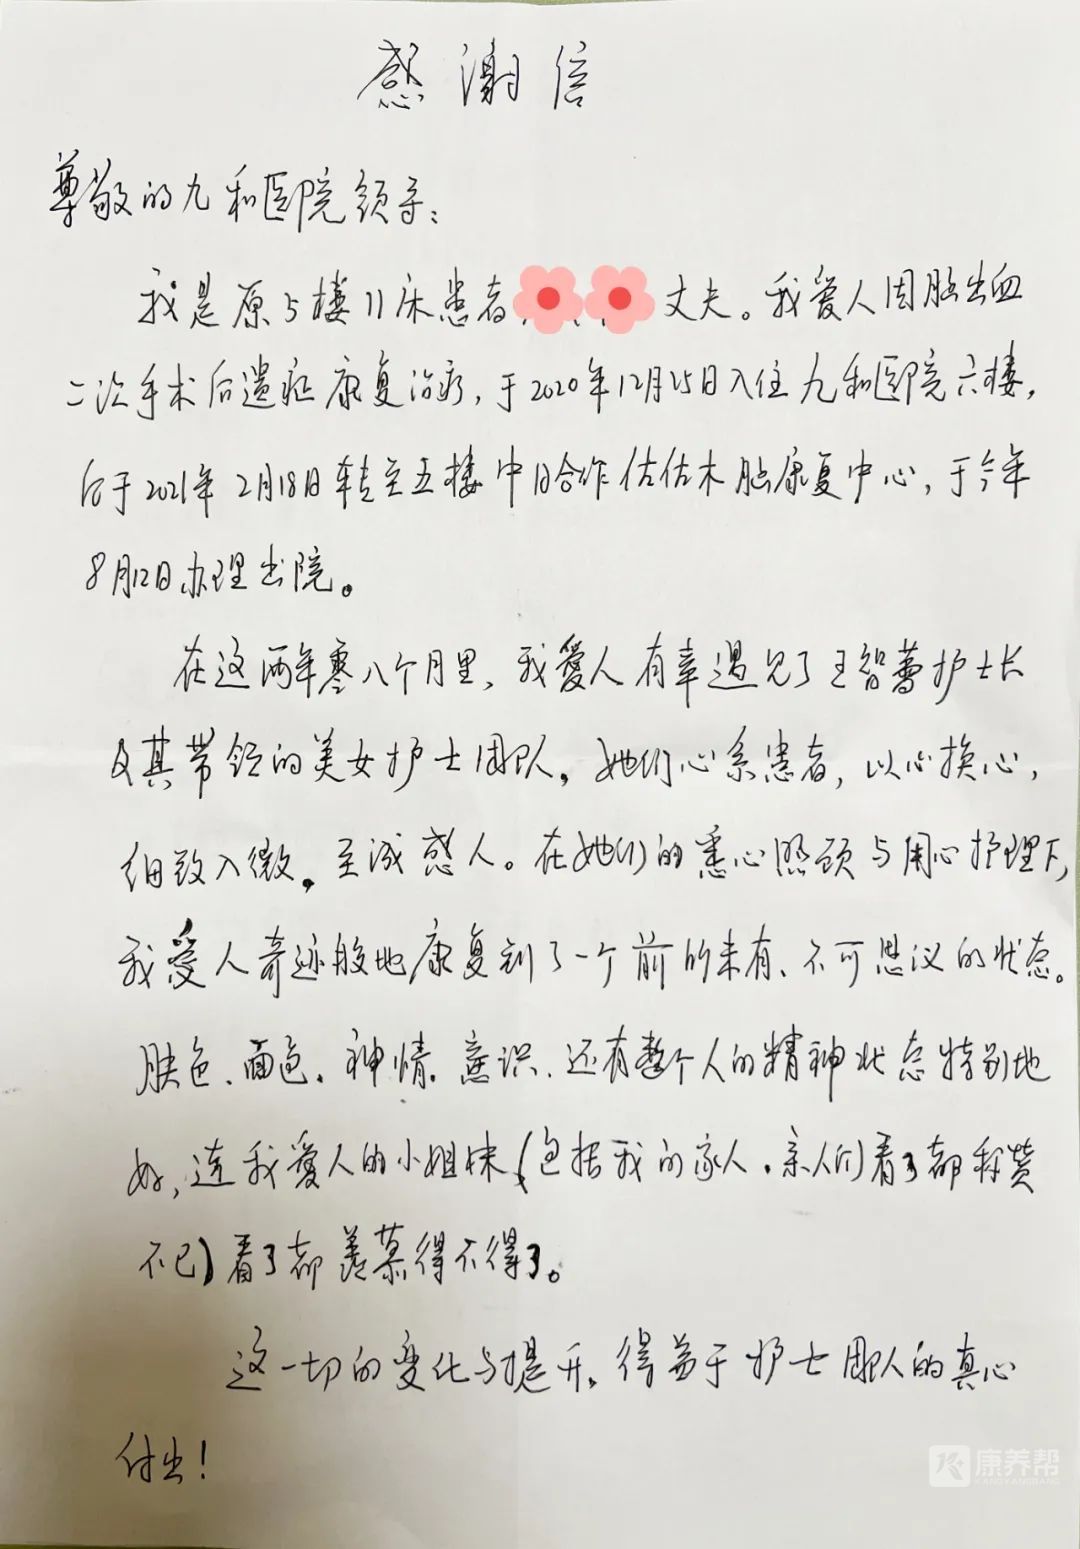 感谢信
尊敬的九和医院领导：
我是原5楼11床患者 丈夫。我爱人因脑出血
二次手术后遗症康复治疗，于2020年12月25日入住九和医院六楼，
后于2021年2月18日转至五楼中日合作佐佐木脑康复中心，于今年
8月12日办理出院。
在这两年零八个月里，我爱人有幸遇见了王智蕾护士长
及其带领的美女护士团队。她们心系患者，以心换心，
细致入微。至诚感人。在她们的悉心照顾与用心护理下，
我爱人奇迹般地康复到了一个前所未有、不可思议的状态。
肤色、面色、神情、意识、还有整个人的精神状态特别地
好，连我爱人的小姐妹（包括我的家人、亲人们看了都称赞
不已）看了都羡慕得不得了。
这一切的变化与提升，得益于护士团队的真心
付出！
康养帮
KANGYANGBANG